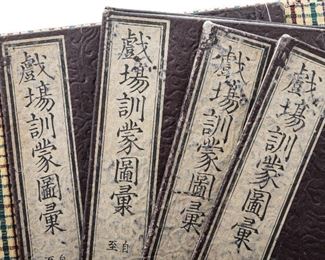 戲場訓蒙圖彙
自
至
戲場訓蒙圖彙
自
至
戲場訓蒙圖彙
戲場訓蒙圖彙